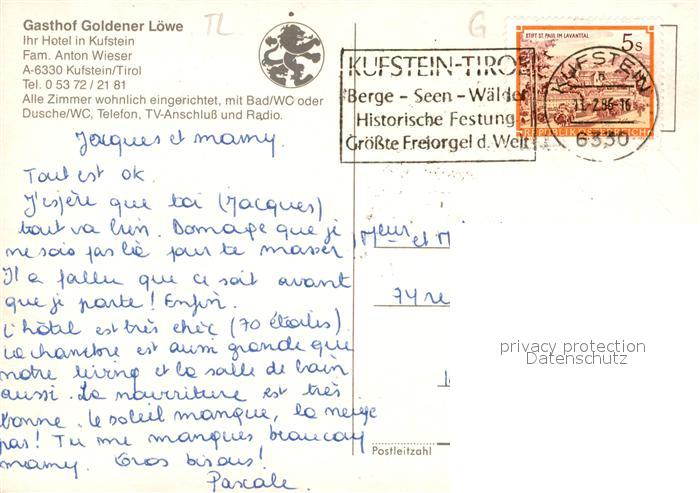 Gasthof Goldener Löwe
Ihr Hotel in Kufstein
Fam. Anton Wieser
A-6330 Kufstein/Tirol
Tel. 0 53 72 / 21 81
Alle Zimmer wohnlich eingerichtet, mit Bad/WC oder
Dusche/WC, Telefon, TV-Anschluß und Radio.
TL
G
STIFT ST. PAUL IM LAVANTTAL
5 S
REPUBLIK ÖSTERREICH
KUFSTEIN-TIROL
Berge - Seen - Wälder
Historische Festung
Größte Freiorgel d. Welt
KUFSTEIN
6330
Jacques et mamy.
Tout est ok.
J'espère que toi (Jacques)
tout va bien. Domage que je
ne sois pas là pour te masser
Il a fallu que ce soit avant
que je parte! Enfin.
L'hôtel est très chèc (70 étoiles).
La chambre est aussi grande que
notre living et la salle de bain
aussi. La nourriture est très
bonne. le soleil manque, la neige
pas! Tu me manques beaucoup
mamy. Gros bisous!
Pascale.
Meur et M
74 re
Postleitzahl
privacy protection
Datenschutz